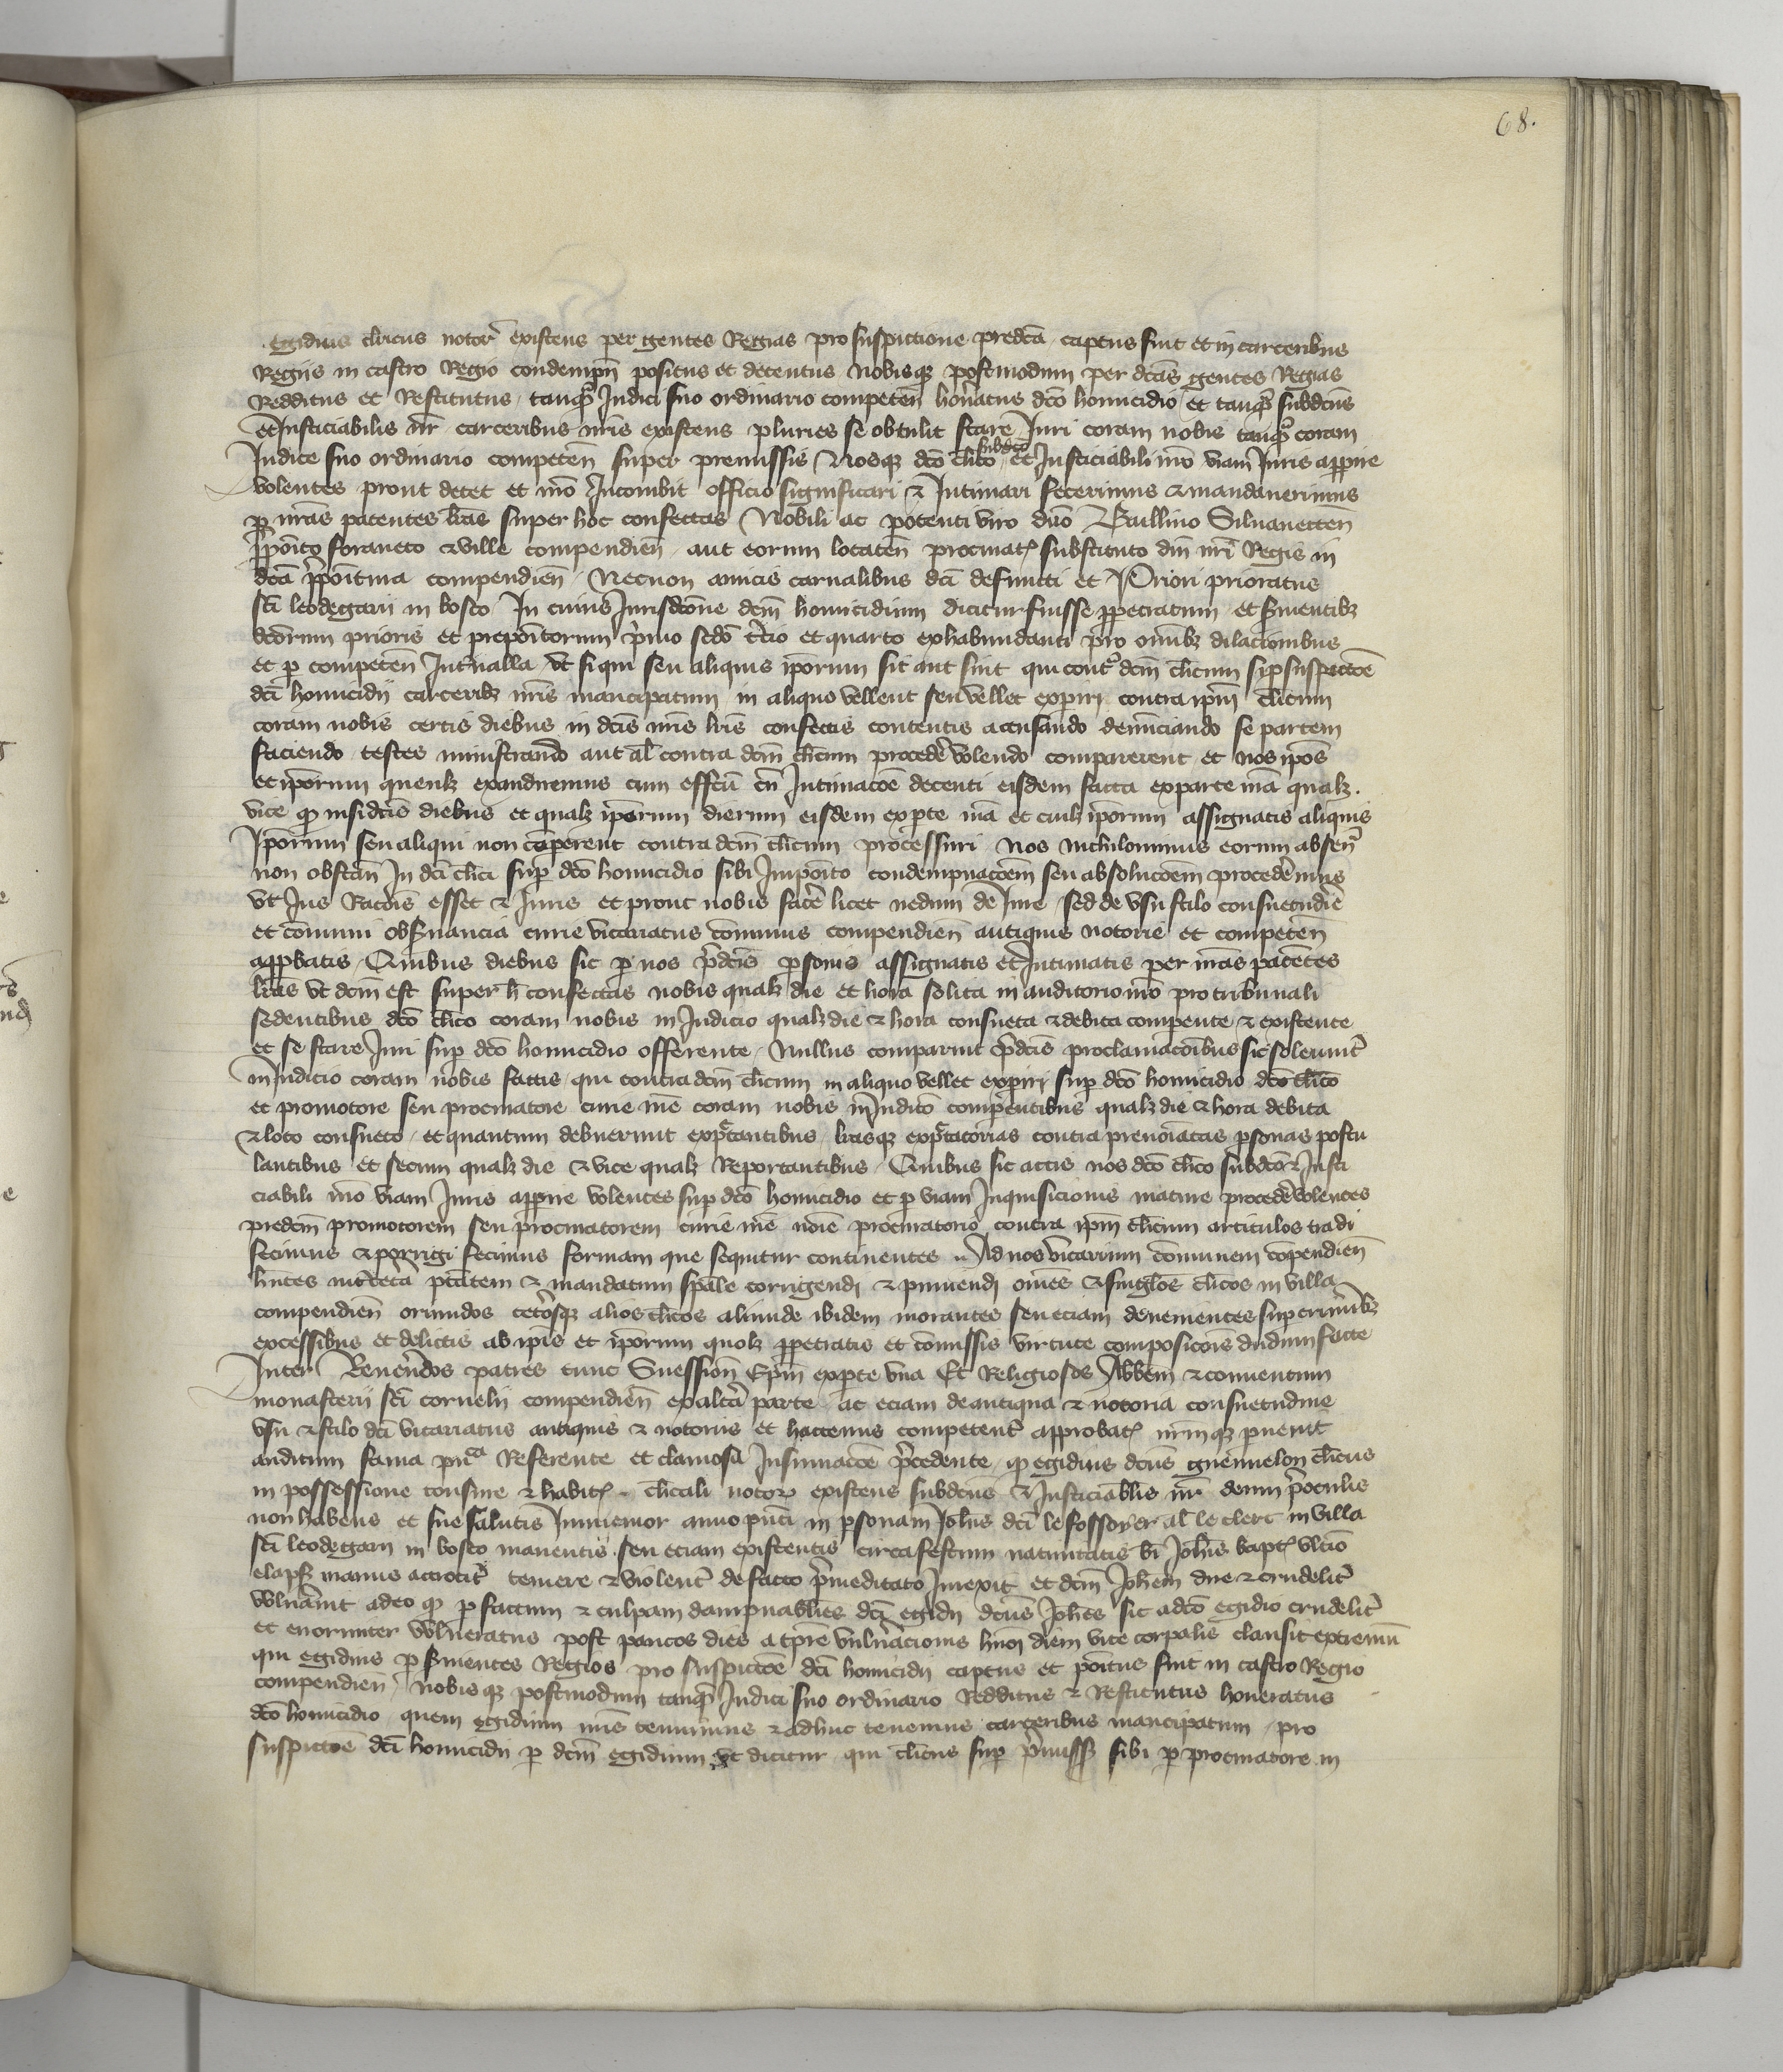 68.
Egidius clericus notor̄ existens per gentes Regias pro suspictione predc̄a captus fuit et in carceribus
Regiis in castro Regio condempn̄ positus et detentus nobisqꝫ postmodum per dc̄as gentes Regias
Redditus et Restitutus tanqꝫ Iudici suo ordinario competen̄ hon̄atus dc̄o homicidio et tanqꝫ subdc̄us
et Iusticiabilis nr̄ carceribus nr̄is existens pluries se obtulit stare Iuri coram nobis tanqꝫ coram
subdc̄o
Iudice suo ordinario competen̄ super premissis Nosqꝫ dc̄o clīco et Iusticiabili nr̄o viam Iuris app̄ire
volentes prout decet et nr̄o Incombit officio significari ⁊ Intimari fecerimus ⁊ mandauerimus
ꝑ nr̄as patentes lr̄as super hoc confectas Nobili ac potenti viro dn̄o Baillino Siluanecten̄
p̄poīto foraneo ⁊ ville compendien̄ aut eorum locaten̄ procurat̄ substituto dn̄i nr̄i Regis in
dc̄a p̄poītura compendien̄ Necnon amicis carnalibus dc̄i defuncti et Priori prioratus
sc̄i leodegarii in bosco In cuius Iurisdc̄one dcm̄ homicidium dicitur fuisse ꝑpetratum et s̄uientibꝫ
dc̄orum prioris et prepoītorum p̄mo sedō t̄cio et quarto exhabundanti pro omībꝫ dilacionibus
et ꝑ competen̄ Int̄ualla vt si qui seu aliquis ip̄orum sit aut sint qui cont̄ dcm̄ clīcum suꝑ suspictōe
dc̄i homicidii carceribꝫ nr̄is mancipatum in aliquo vellent seu vellet expiri contra ip̄m clīcum
coram nobis certis diebus in dc̄is nr̄is lr̄is confectis contentis accusando denunciando se partem
faciendo testes ministrando aut al̄ contra dcm̄ clīcum proced̄e volendo comparerent et nos ip̄os
et ip̄orum quemlꝫ exaudiremus cum effc̄u cū Intimac̄oe decenti eisdem facta ex parte nr̄a qualꝫ
vice qꝫ in sidc̄is diebus et qualꝫ ip̄orum dierum eisdem ex ꝑte nr̄a et cuilꝫ ip̄orum assignatis aliquis
Ip̄orum seu aliqui non cōperent contra dcm̄ clīcum processuri Nos nichilominus eorum absen̄
non obstan̄ In dc̄i clīci suꝑ dc̄o homicidio sibi Impoīto condempnac̄oem seu absoluc̄oem proced̄emus
vt Ius Rac̄ois esset ⁊ Iuris et prout nobis fac̄e licet nedum de Iure sed de vsu stilo consuetudīe
et cōmuni obs̄uancia curie vicariatus cōmunis compendien̄ antiquis notorie et competen̄
app̄batis Quibus diebus sic ꝑ nos p̄dc̄is ꝑsonis assignatis et Intimatis per nr̄as patentes
lr̄as vt dcm̄ est super h̄ confectas nobis qualꝫ die et hora solita in auditorio nr̄o pro tribunali
sedentibus dc̄o clīco coram nobis in Iudicio qualꝫ die ⁊ hora consueta ⁊ debita comparente ⁊ existente
et se stare Iuri suꝑ dc̄o homicidio offerente Nullus comparuit p̄dc̄is proclamac̄oibus sic solenniter
in Iudicio coram nobis factis qui contra dcm̄ clīcum in aliquo vellet expiri suꝑ dc̄o homicidio dc̄o clīco
et promotore seu procuratore curie nr̄e coram nobis in Iudicō comparentibus qualꝫ die ⁊ hora debita
⁊ loco consueto et quantum debuerunt expc̄tantibus lr̄asqꝫ expc̄tatorias contra prenoīatas ꝑsonas postu
lantibus et secum qualꝫ die ⁊ vice qualꝫ Reportantibus Quibus sic actis nos dc̄o clīco subdc̄o ⁊ Iusti
ciabili nr̄o viam Iuris app̄ire volentes suꝑ dc̄o homicidio et ꝑ viam Inquisicionis mature proced̄e volentes
predcm̄ promotorem seu procuratorem curie nr̄e noīe procuratorio contra ip̄m clīcum articulos tradi
fecimus ⁊ porrigi fecimus formam que sequitur continentes Ad nos vicarium cōmunem cōpendien̄
hn̄tes int̄ cetera ptātem ⁊ mandatum spāle corrigendi ⁊ puniendi om̄es ⁊ singl̄os clīcos in villa
compendien̄ oriundos cet̄osqꝫ alios clīcos aliunde ibidem morantes seu eciam deuenientes super crimībꝫ
excessibus et delictis ab ip̄is et ip̄orum quolꝫ ꝑpetratis et cōmissis virtute composic̄ois dudum facte
Inter Reuerēdos patres tunc Suession̄ Ep̄m ex ꝑte vna Et Religiosos Abbem̄ ⁊ conuentum
monasterii sc̄i cornelii compendien̄ ex alt̄a parte ac eciam de antiqua ⁊ notoria consuetudine
vsu ⁊ stilo dc̄i vicariatus antiquis ⁊ notoriis et hactenus competenter approbat̄ nr̄mqꝫ ꝑuenit
auditum fama pūca Referente et clamosa Insinuac̄oe p̄cedente qꝫ egidius dc̄us guennelon clīcus
in possessione tonsure ⁊ habitꝫ clīcali notor̄ existens subdc̄us ⁊ Iusticiabilis nr̄ deum p̄ oculis
non habens et sue salutis Inmemor anno pn̄ti in ꝑsonam Ioh̄is dc̄i le fossoyer al̄ le clerc in villa
sc̄i leodegarii in bosco manentis seu eciam existentis circa festum natiuitatis bī Ioh̄is bapt̄ vltīo
elapsꝫ manus atrocit̄ temere ⁊ violent̄ de facto p̄meditato Iniexit et dcm̄ Ioh̄em dire ⁊ crudelit̄
vuln̄auit adeo qꝫ ꝑ factum ⁊ culpam dampnabiles dc̄i egidii dc̄us Ioh̄es sic a dc̄o egidio crudelit̄
et enormiter vulneratus post paucos dies a tp̄re vuln̄acionis hmōi diem vite corpalis clausit extremū
qui egidius ꝑ s̄uientes Regios pro suspictōe dc̄i homicidii captus et poītus fuit in castro Regio
compendien̄ nobisqꝫ postmodum tanqꝫ Iudici suo ordinario Redditus ⁊ Restitutus honeratus
dc̄o homicidio quem egidium nr̄is tenuimus ⁊ adhuc tenemus carceribus mancipatum pro
suspictōe dc̄i homicidii ꝑ dcm̄ egidium vt dicitur qui clīcus suꝑ p̄missꝫ sibi ꝑ procuratore in